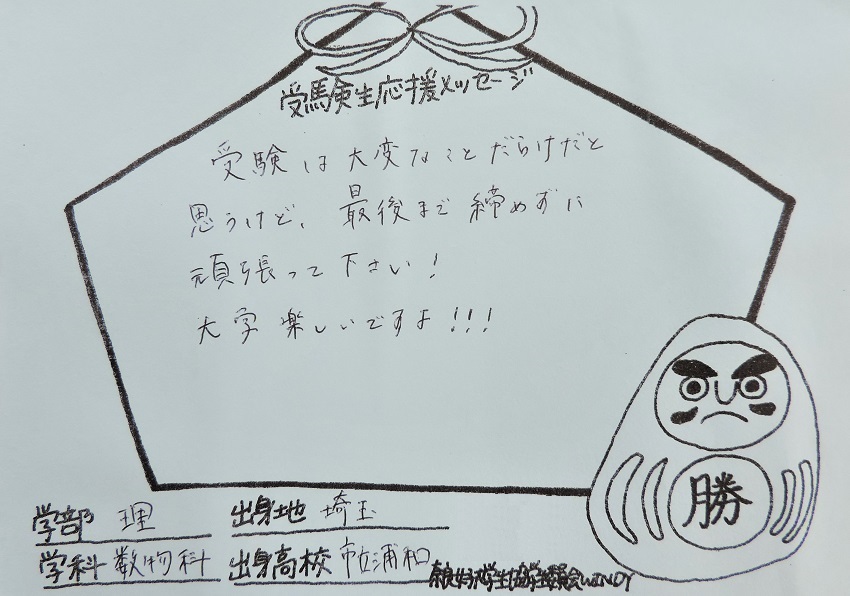 受験生応援メッセージ
受験は大変なことだらけだと
思うけど、最後まで締めずに
頑張って下さい!
大学楽しいですよ!!!
勝
学部 理 出身地 埼玉
学科 数物科 出身高校 市立浦和
奈良女子大学生協学生委員会WINDY